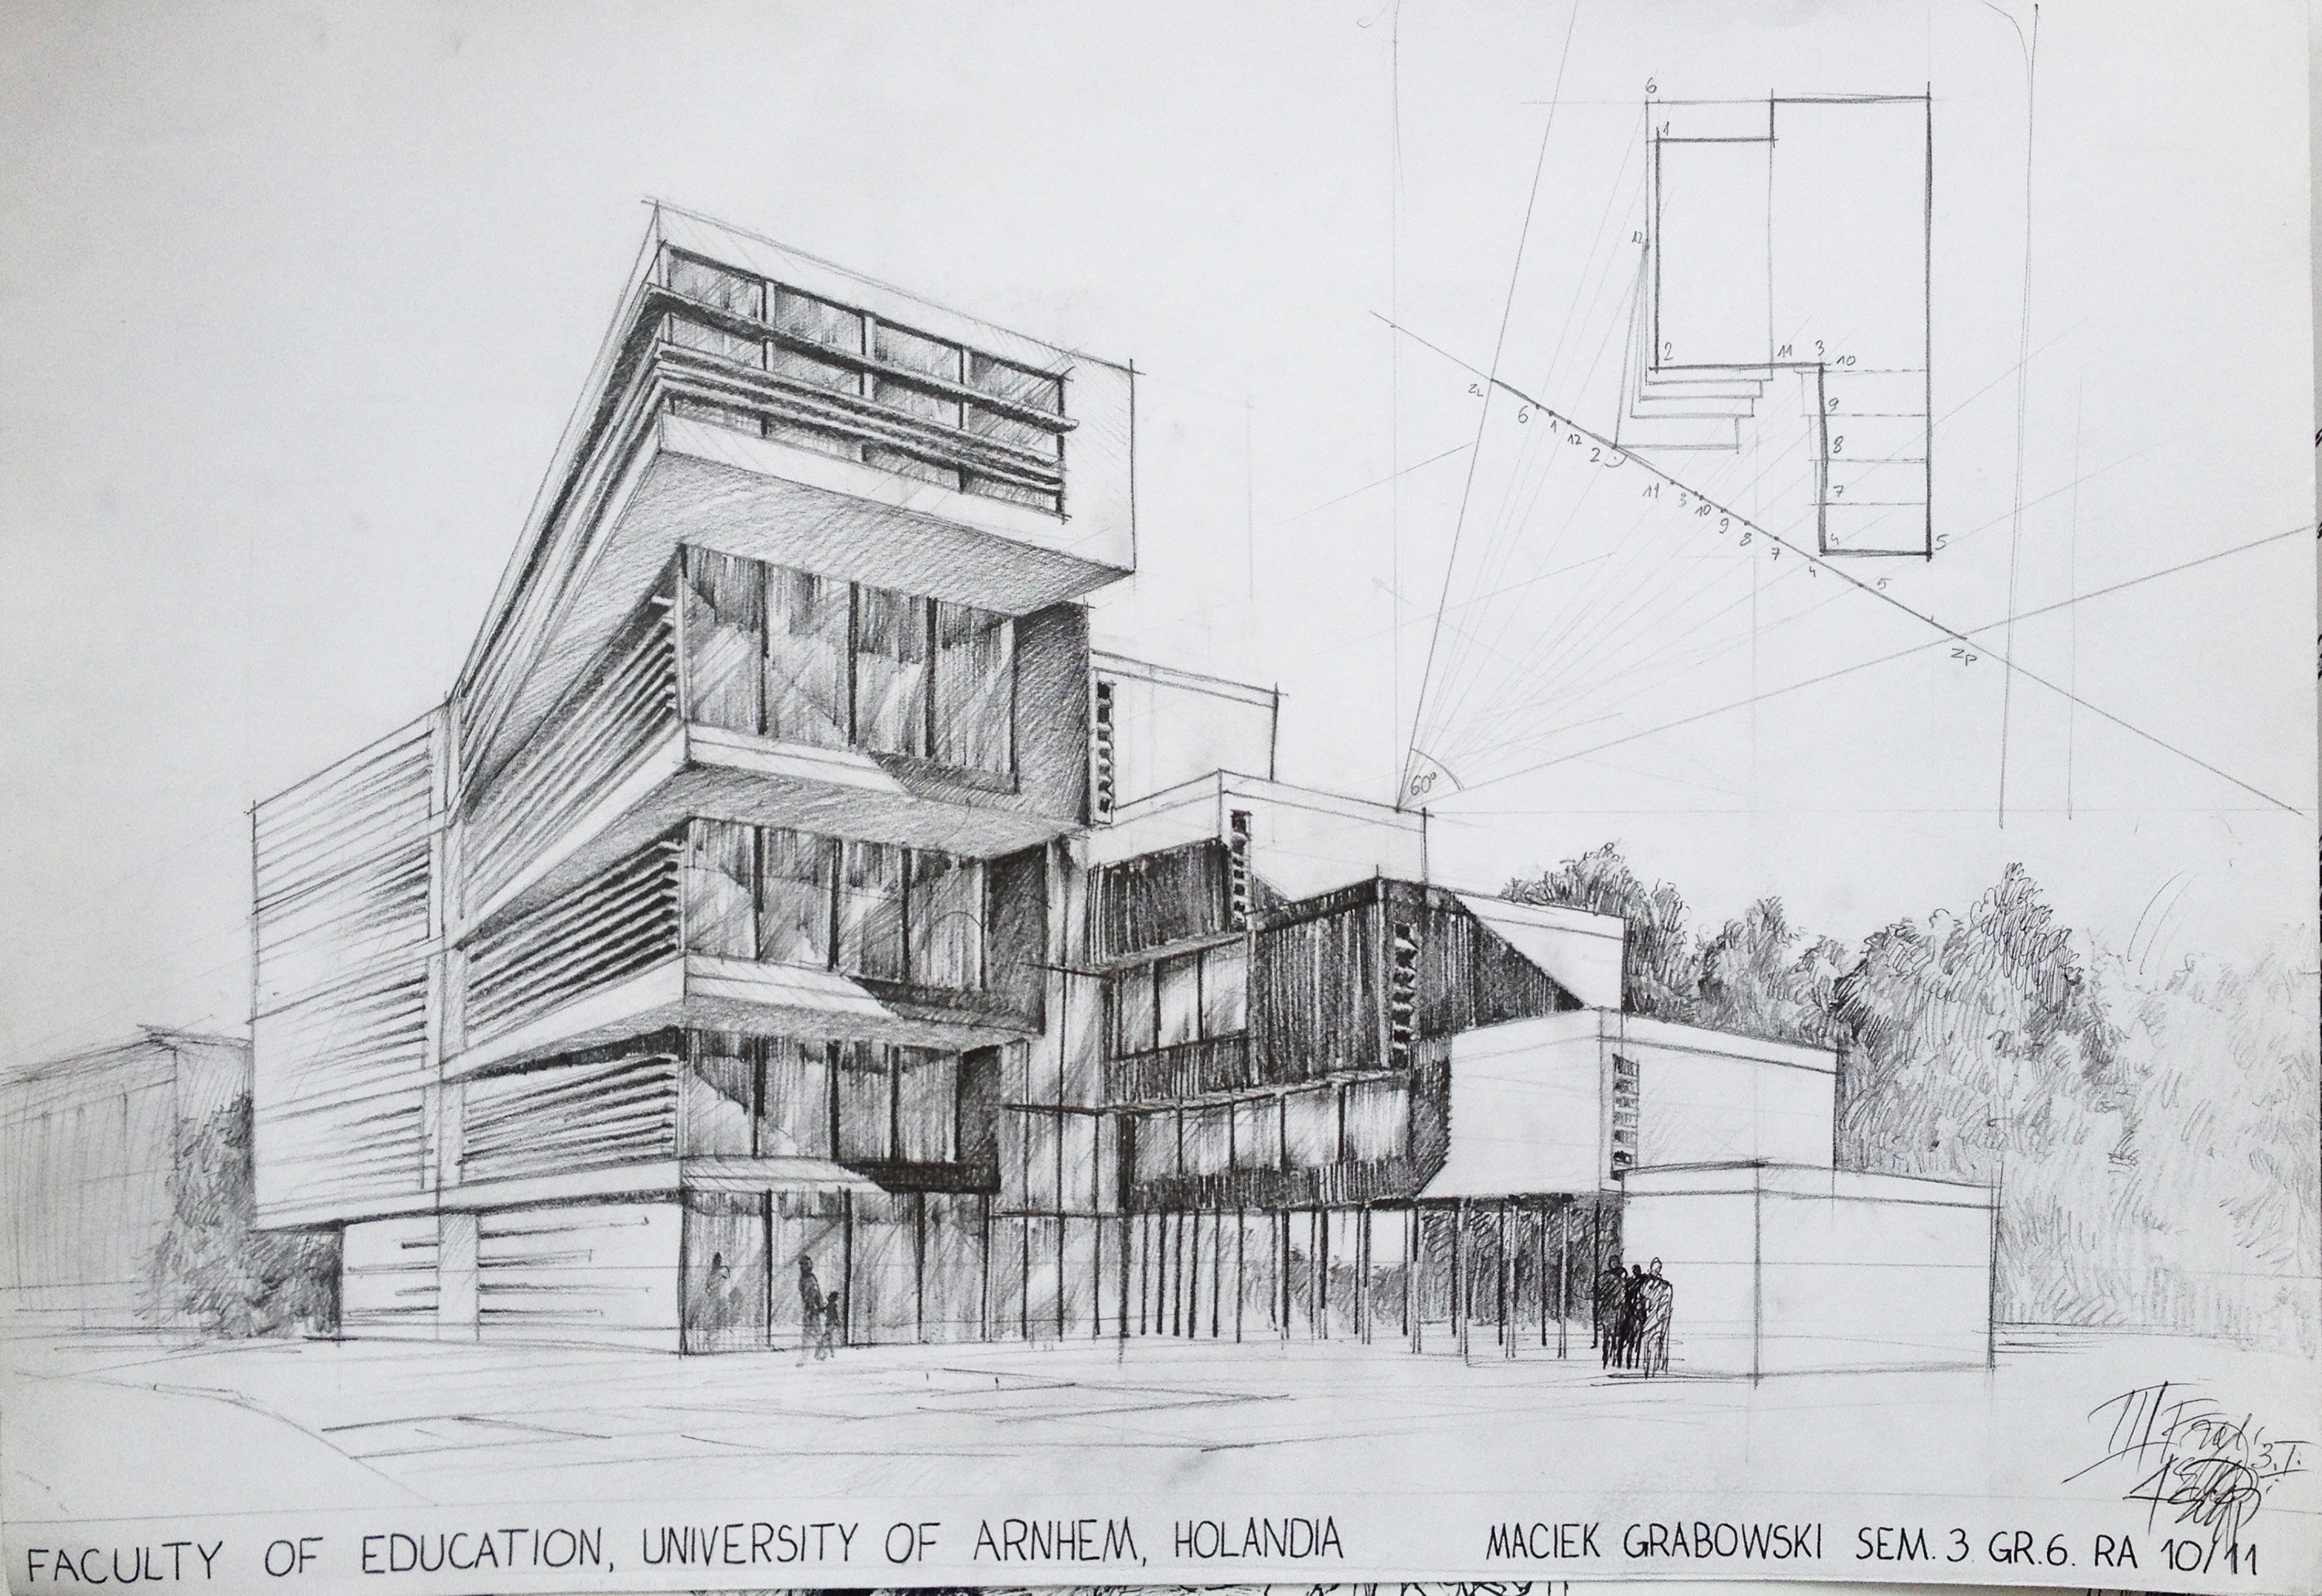 6
1
12
2
11 3 10
9
8
7
4 5
ZL
6 1 12 2 11 3 10 9 8 7 4 5
ZP
60°
III
3.I.
FACULTY OF EDUCATION, UNIVERSITY OF ARNHEM, HOLANDIA MACIEK GRABOWSKI SEM. 3 GR.6. RA 10/11